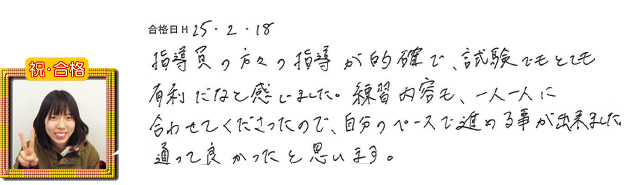 合格日 H 25・2・18
祝・合格
指導員の方々の指導が的確で、試験でもとても
有利だなと感じました。練習内容も、一人一人に
合わせてくださったので、自分のペースで進める事が出来ました。
通って良かったと思います。